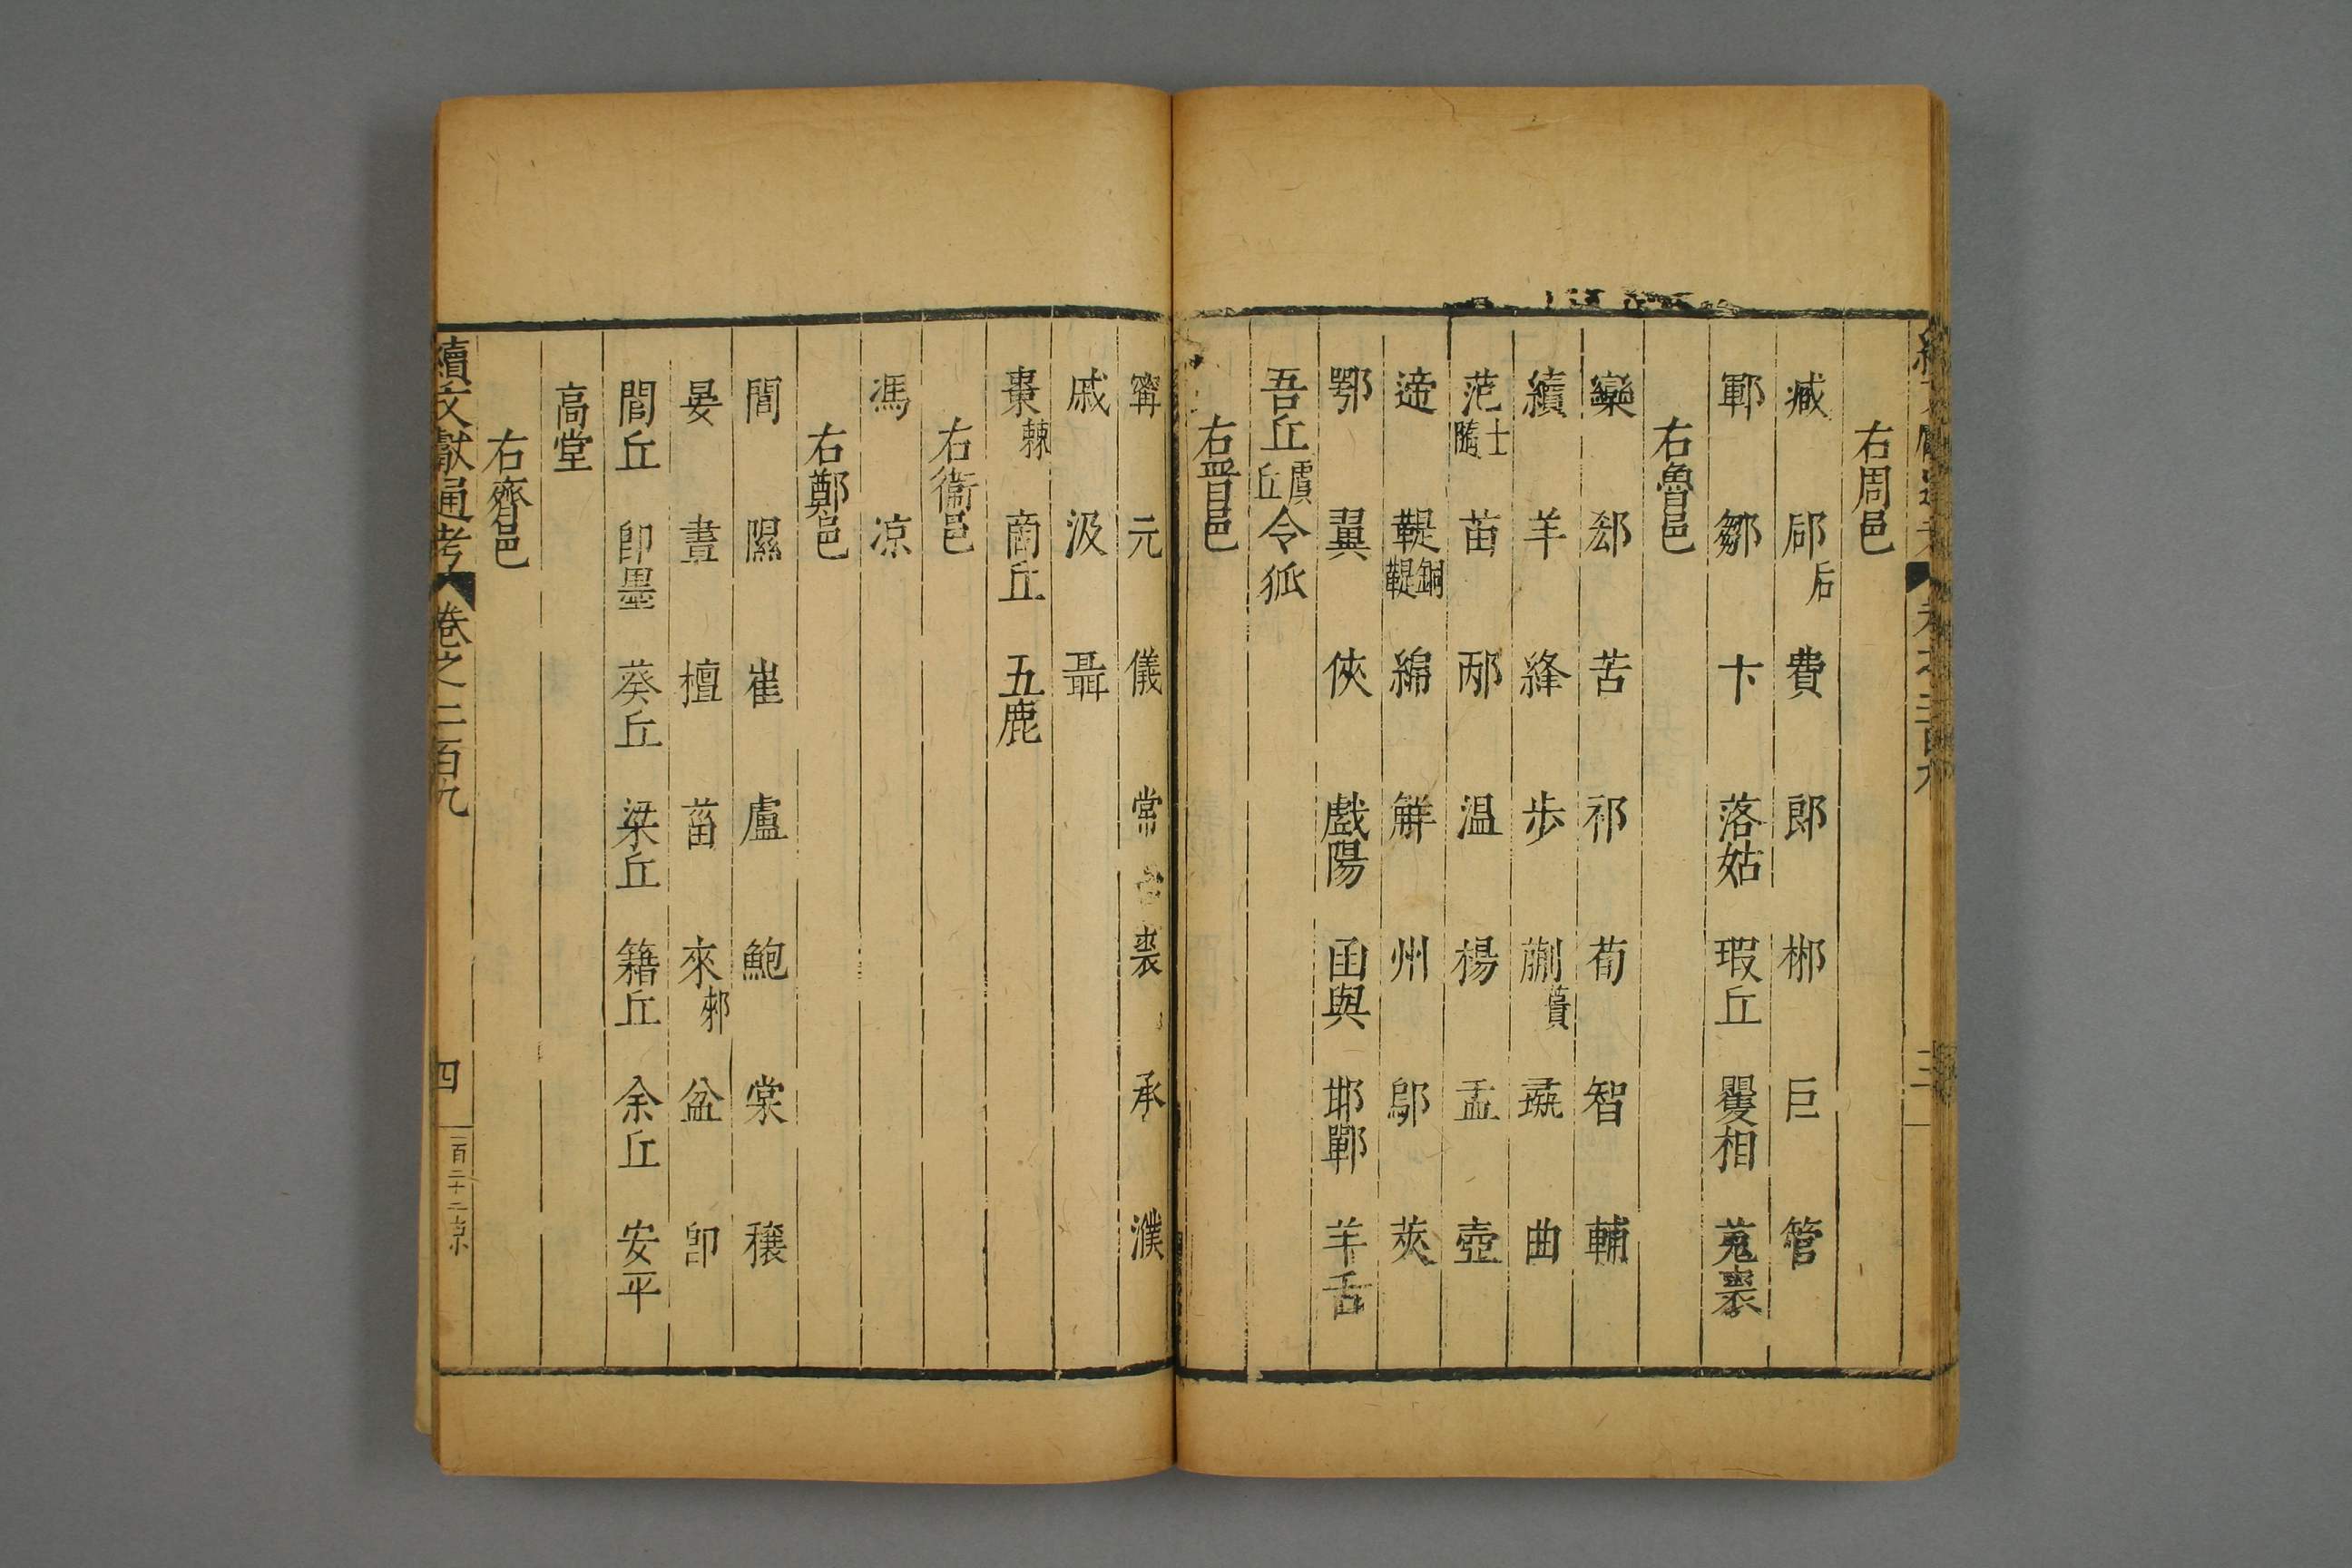 右周邑
臧 郈后 費 郎 郴 巨 管
鄆 鄒 卞 落姑 瑕丘 矍相 蒐裘
右魯邑
欒 郄 苦 祁 荀 智 輔
續 羊 絳 步 蒯蕢 彘 曲
范士隨 苗 邴 温 楊 孟 壺
遆 鞮銅鞮 綿 解 州 鄔 莢
鄂 翼 俠 戲陽 函輿 邯鄲 羊舌
吾丘虞丘 令狐
右晋邑
甯 元 儀 常 裘 承 濮
戚 汲 聶
棗棘 商丘 五鹿
右衛邑
馮 凉
右鄭邑
閭 隰 崔 盧 鮑 棠 穰
晏 晝 檀 菑 來郲 盆 卽
閭丘 卽墨 葵丘 梁丘 籍丘 余丘 安平
高堂
右齊邑
續文獻通考 卷之二百九 四 二百二十二京